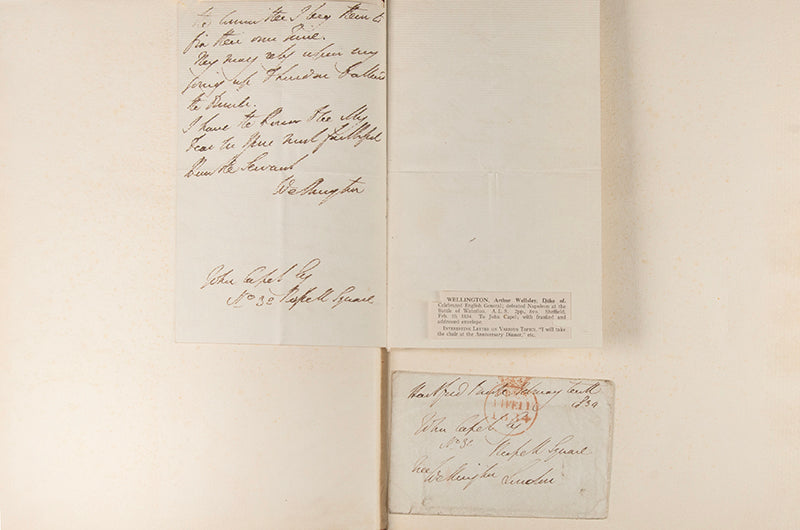 the Committee I beg them to
fix their own Time.
They may rely upon my
going up
I have the Honor to be My
Dear Sir Your most faithful
Humble Servant
Wellington
John Capel Esq
No 32 Russell Square
WELLINGTON, Arthur Wellesley, Duke of.
Celebrated English General; defeated Napoleon at the
Battle of Waterloo. A.L.S. 2pp., 8vo. Sheffield,
Feb. 10, 1834. To John Capel; with franked and
addressed envelope.
INTERESTING LETTER ON VARIOUS TOPICS. "I will take
the chair at the Anniversary Dinner," etc.
February tenth
1834
John Capel Esq
Russell Square
London
Wellington